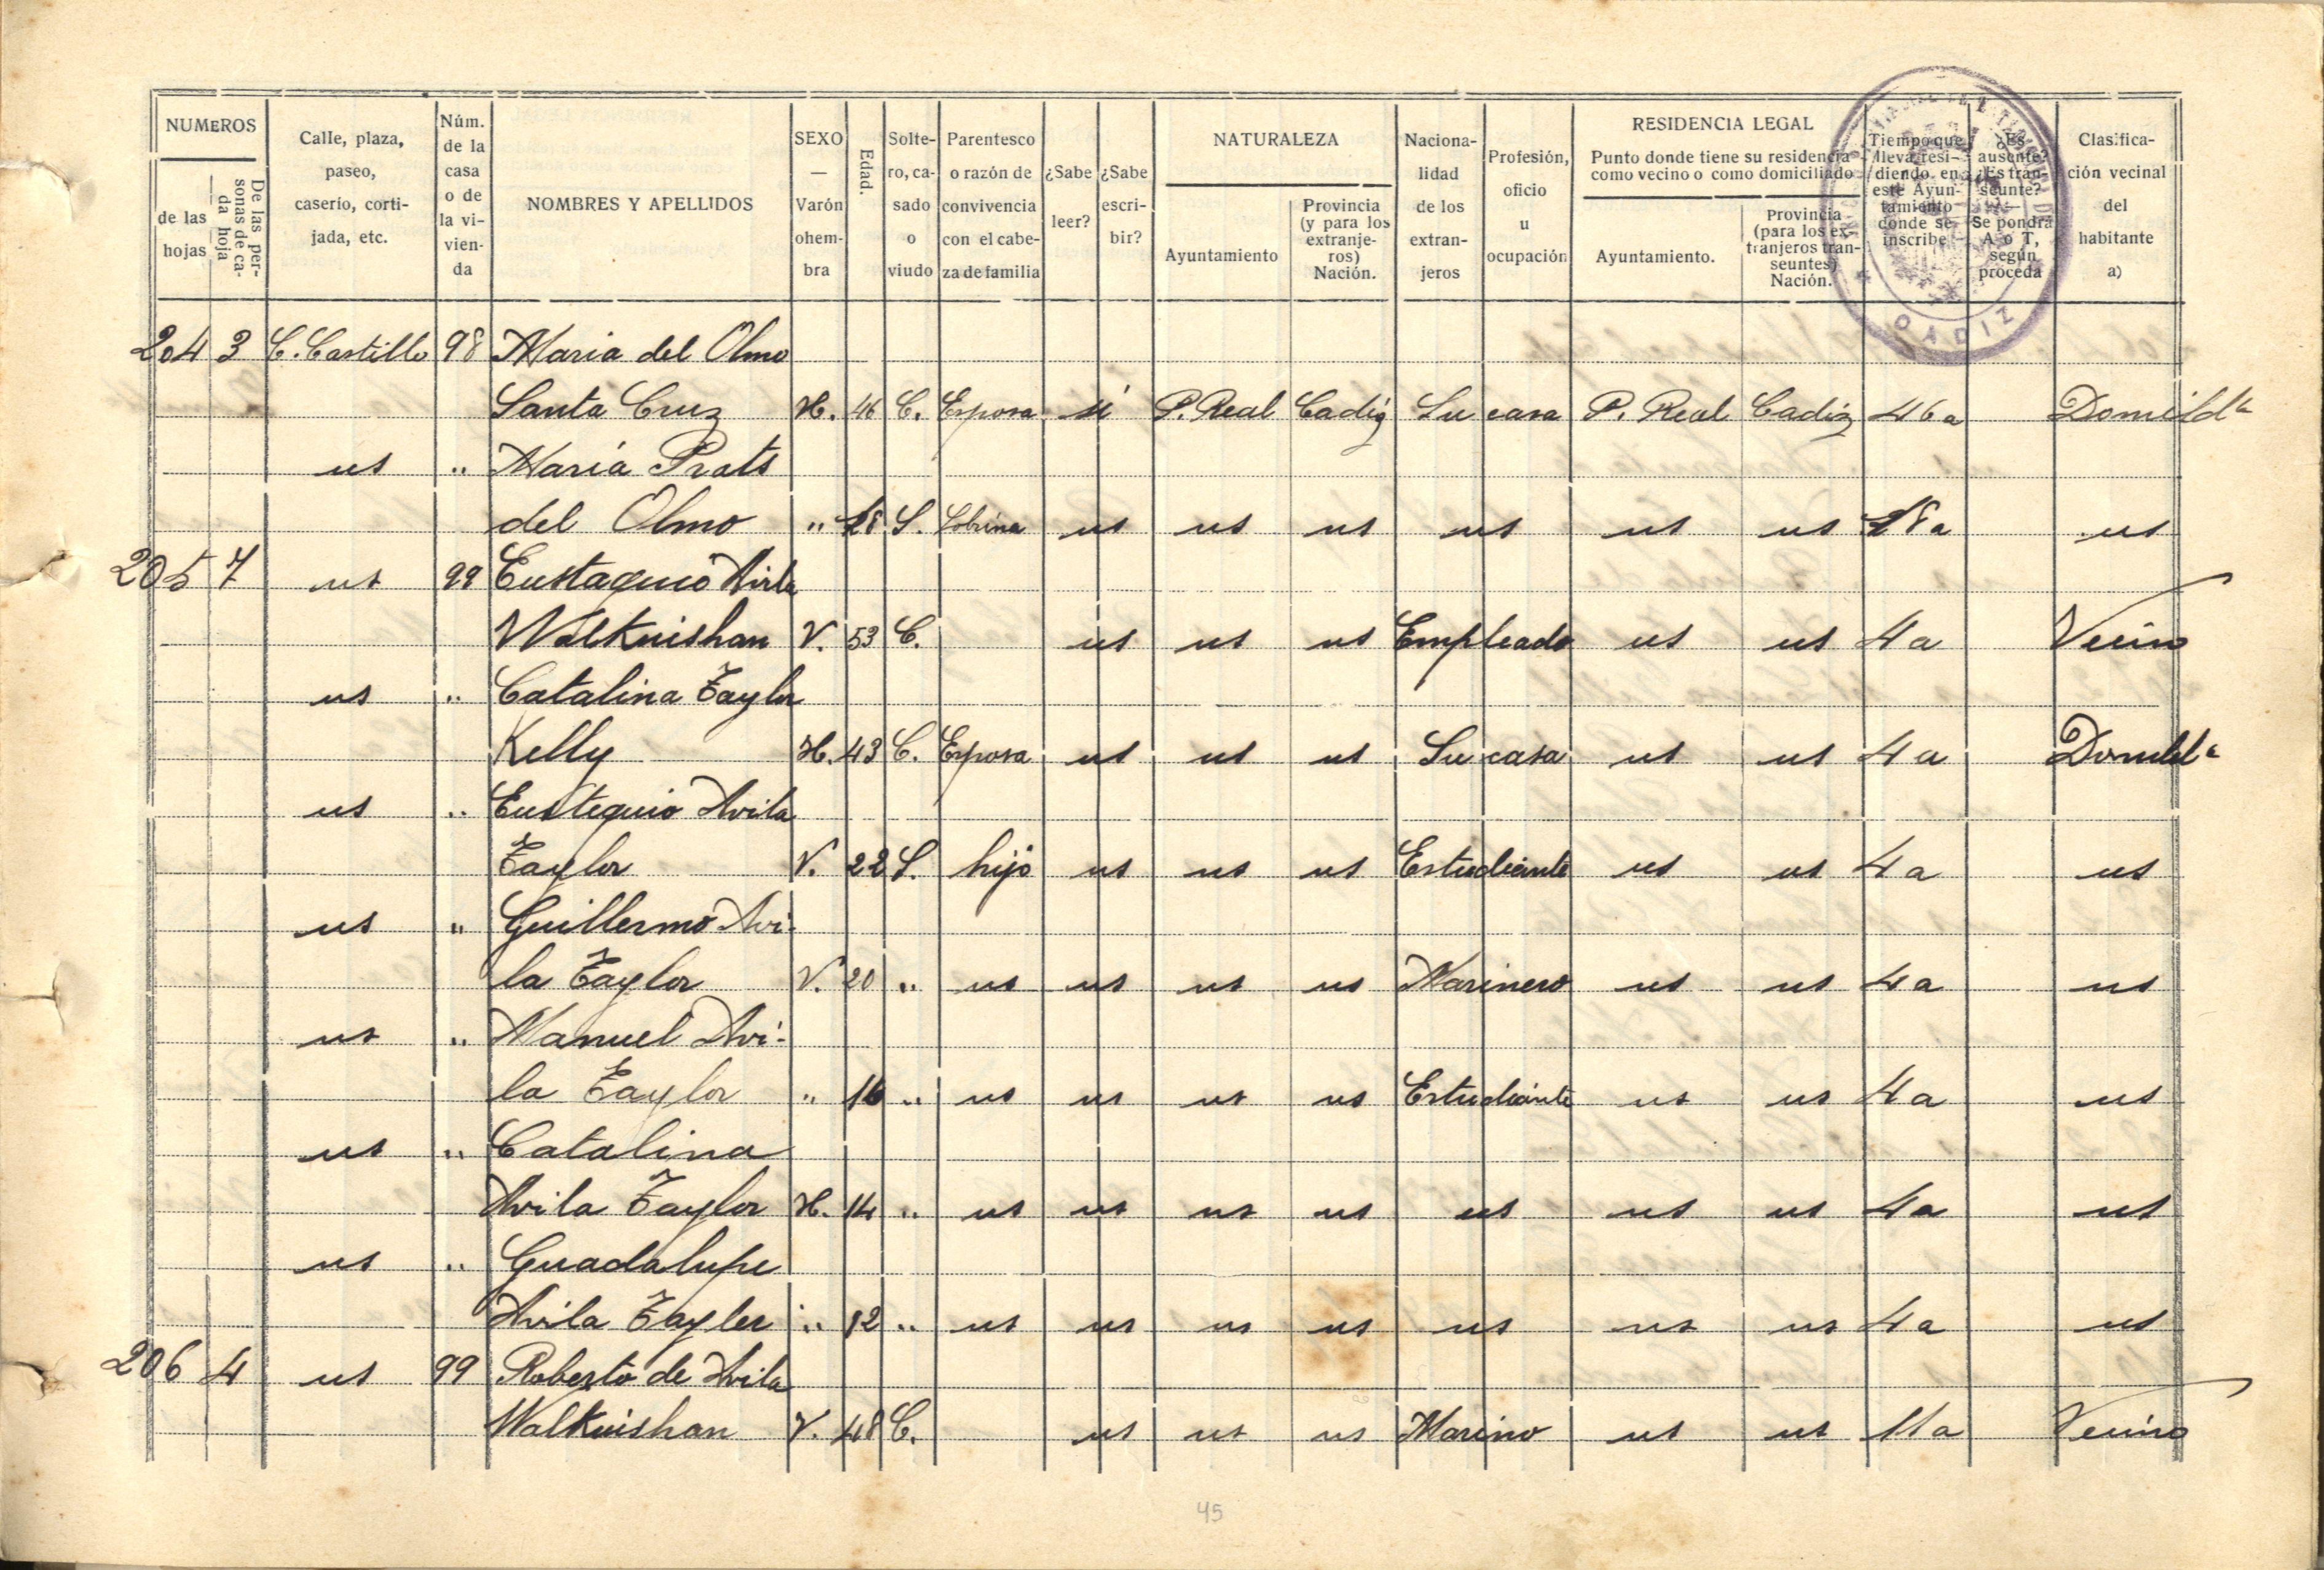 NUMEROS
de las hojas
De las personas de cada hoja
Calle, plaza, paseo, caserio, cortijada, etc.
Núm. de la casa o de la vivienda
NOMBRES Y APELLIDOS
SEXO — Varón ohembra
Edad.
Soltero, casado o viudo
Parentesco o razón de convivencia con el cabeza de familia
¿Sabe leer?
¿Sabe escribir?
NATURALEZA
Ayuntamiento
Provincia (y para los extranjeros) Nación.
Nacionalidad de los extranjeros
Profesión, oficio u ocupación
RESIDENCIA LEGAL
Punto donde tiene su residencia como vecino o como domiciliado
Ayuntamiento.
Provincia (para los extranjeros transeuntes) Nación.
Tiempo que lleva residiendo en este Ayuntamiento donde se inscribe
¿Es ausente? ¿Es transeunte? — Se pondrá A o T, según proceda
Clasificación vecinal del habitante a)
CADIZ
204 3 C. Castillo 98 Maria del Olmo
Santa Cruz H. 46 C. Esposa si P. Real Cadiz Su casa P. Real Cadiz 46 a Domild.ª
us " Maria Prats
del Olmo " 18 S. Sobrina us us us us us us 18 a us
205 7 us 99 Eustaquio Avila
Walknishan V. 53 C. us us us Empleado us us 4 a Vecino
us " Catalina Taylor
Kelly H. 43 C. Esposa us us us Su casa us us 4 a Domild.ª
us " Eustequio Avila
Taylor V. 22 S. hijo us us us Estudiante us us 4 a us
us " Guillermo Avi-
la Taylor V. 20 " us us us us Marinero us us 4 a us
us " Manuel Avi-
la Taylor " 16 " us us us us Estudiante us us 4 a us
us " Catalina
Avila Taylor H. 14 " us us us us us us us 4 a us
us " Guadalupe
Avila Tayler " 12 " us us us us us us us 4 a us
206 4 us 99 Roberto de Avila
Walknishan V. 48 C. us us us Marino us us 11 a Vecino
45